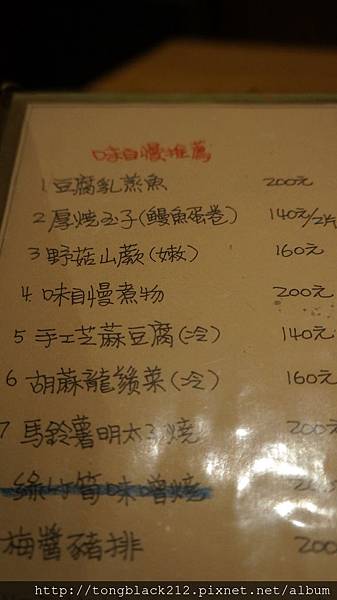 味自慢推薦
1 豆腐乳煎魚 200元
2 厚燒玉子(鰻魚蛋卷) 140元/2片
3 野菇山蕨(嫩) 160元
4 味自慢煮物 200元
5 手工芝蔴豆腐(冷) 140元
6 胡蔴龍鬚菜(冷) 160元
7 馬鈴薯明太子燒 200元
綠竹筍味噌燒
梅醬豬排 200
http://tongblack212.pixnet.net/album